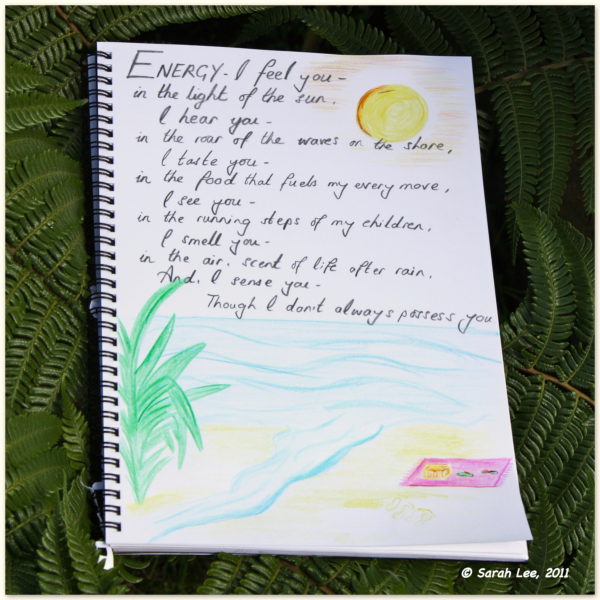 ENERGY - I feel you -
in the light of the sun,
I hear you -
in the roar of the waves on the shore,
I taste you -
in the food that fuels my every move,
I see you -
in the running steps of my children,
I smell you -
in the air, scent of life after rain,
And, I sense you -
Though I don't always possess you
© Sarah Lee, 2011